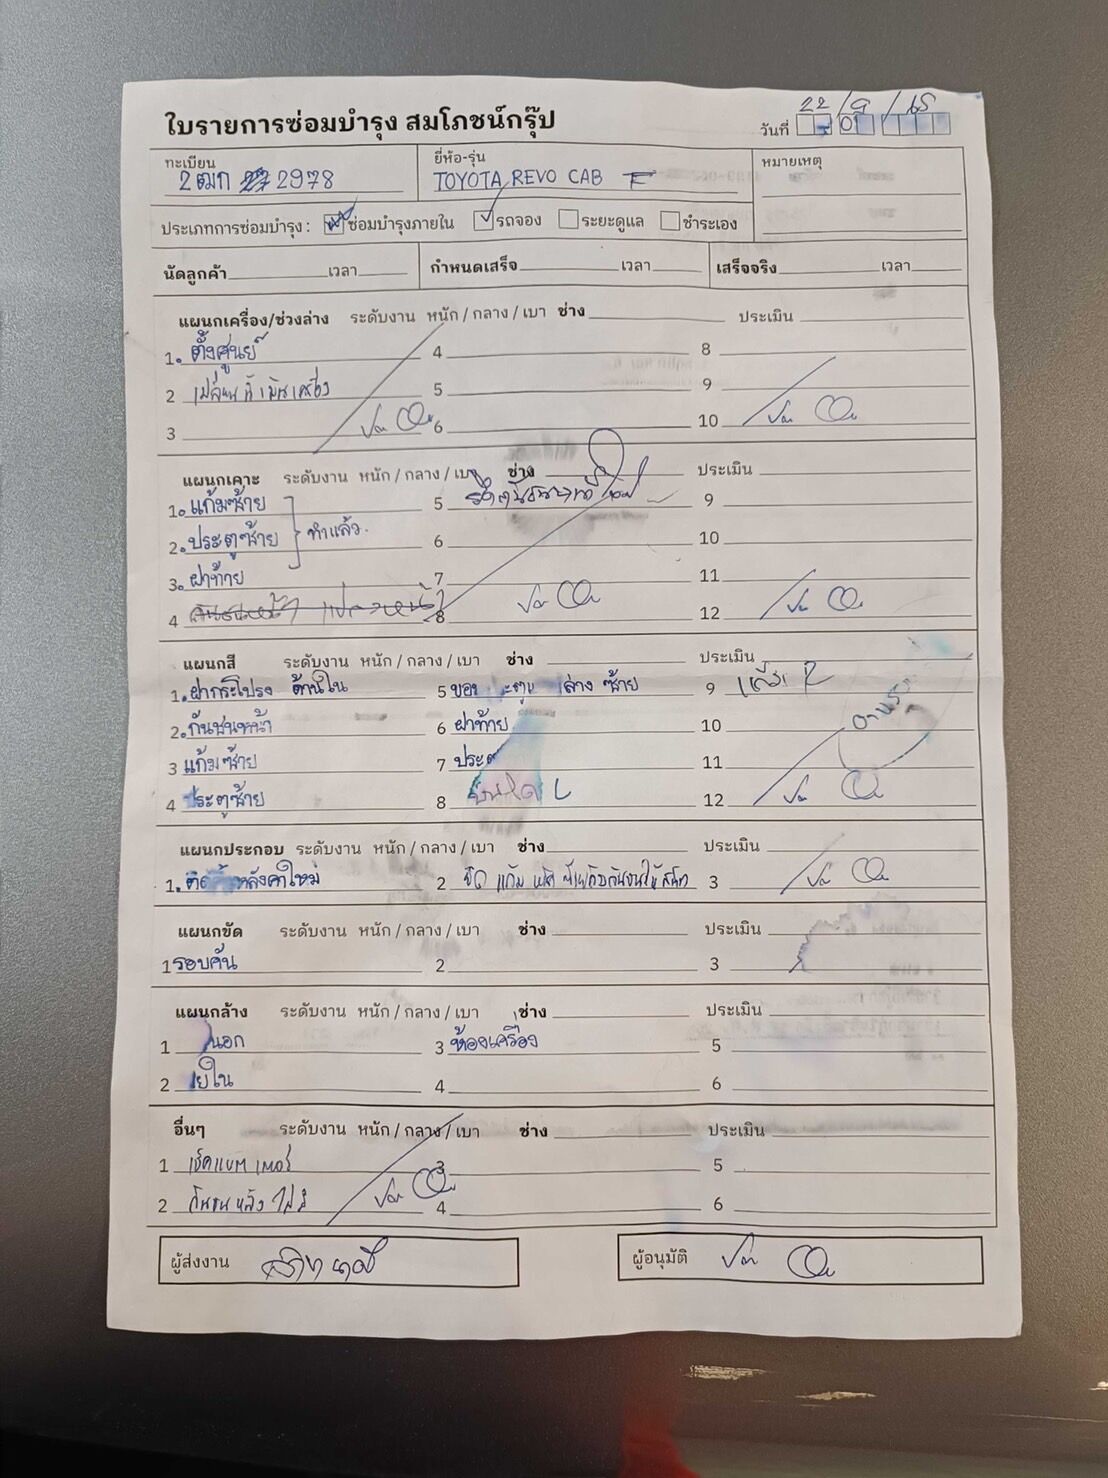 ใบรายการซ่อมบำรุง สมโภชน์กรุ๊ป
วันที่ 22/9/65
ทะเบียน ยี่ห้อ-รุ่น หมายเหตุ
2ฒก 2978 TOYOTA REVO CAB
ประเภทการซ่อมบำรุง : ซ่อมบำรุงภายใน รถจอง ระยะดูแล ชำระเอง
นัดลูกค้า เวลา กำหนดเสร็จ เวลา เสร็จจริง เวลา
แผนกเครื่อง/ช่วงล่าง ระดับงาน หนัก / กลาง / เบา ช่าง ประเมิน
1. ตั้งศูนย์ 4 8
2 5 9
3 6 10
แผนกเคาะ ระดับงาน หนัก / กลาง / เบา ช่าง ประเมิน
1. แก้มซ้าย 5 9
2. ประตูซ้าย ทำแล้ว. 6 10
3. ฝาท้าย 7 11
4 8 12
แผนกสี ระดับงาน หนัก / กลาง / เบา ช่าง ประเมิน
1. ฝากระโปรง ด้านใน 5 ล่าง ซ้าย 9
2. กันชนหน้า 6 ฝาท้าย 10
3 แก้มซ้าย 7 11
4 ประตูซ้าย 8 L 12
แผนกประกอบ ระดับงาน หนัก / กลาง / เบา ช่าง ประเมิน
1. หลังคาใหม่ 2 3
แผนกขัด ระดับงาน หนัก / กลาง / เบา ช่าง ประเมิน
1 รอบคัน 2 3
แผนกล้าง ระดับงาน หนัก / กลาง / เบา ช่าง ประเมิน
1 นอก 3 ห้องเครื่อง 5
2 ใน 4 6
อื่นๆ ระดับงาน หนัก / กลาง / เบา ช่าง ประเมิน
1 เช็คแบตเตอรี่ 3 5
2 กันชนหลัง 4 6
ผู้ส่งงาน ผู้อนุมัติ